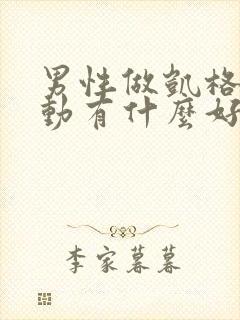 男性做凱格
動有什麼好
李家暮暮